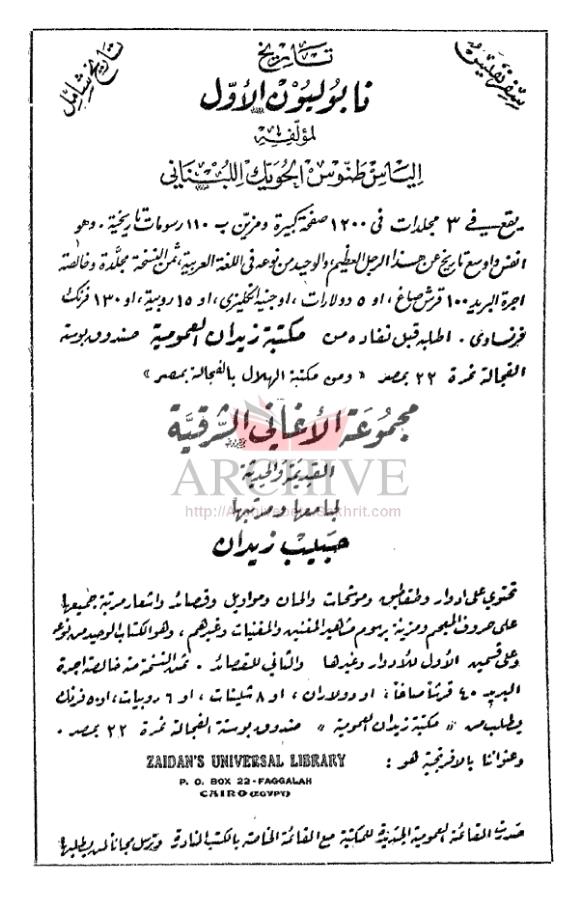 سفر نفيس
تاريخ
تاريخ شامل
نابوليون الأوّل
لمؤلفه
الياس طنوس الحويك اللبناني
يقع في ٣ مجلدات في ١٢٠٠ صفحة كبيرة ومزين ب ١١٠ رسومات تاريخية . وهو
انفس واوسع تاريخ عن هذا الرجل العظيم، والوحيد من نوعه في اللغة العربية، ثمن النسخة مجلدة وخالصة
اجرة البريد ١٠٠ قرش صاغ، او ٥ دولارات، او جنيه انكليزي، او ١٥ روبية، او ١٣٠ فرنك
فرنساوي . اطلبه قبل نفاده من مكتبة زيدان العمومية صندوق بوستة
الفجالة نمرة ٢٢ بمصر « ومن مكتبة الهلال بالفجالة بمصر »
مجموعة الأغاني الشرقية
القديمة والحديثة
ARCHIVE
لجامعها ومرتبها
حبيب زيدان
تحتوي على ادوار وطقاطيق وموشحات والحان ومواويل وقصائد واشعار مرتبة جميعها
على حروف المعجم ومزينة برسوم مشاهير المغنين والمغنيات وغيرهم، وهو الكتاب الوحيد من نوعه
وعلى قسمين الأول للأدوار وغيرها والثاني للقصائد . ثمن النسخة منه خالصة اجرة
البريد ٤٠ قرشاً صاغاً، او دولاران، او ٨ شلينات، او ٦ روبيات، او ٥٠ فرنك
يطلب من « مكتبة زيدان العمومية » صندوق بوستة الفجالة نمرة ٢٢ بمصر .
وعنواننا بالافرنجية هو : ZAIDAN'S UNIVERSAL LIBRARY
P. O. BOX 22-FAGGALAH
CAIRO (EGYPT)
صدرت القائمة العمومية الجديدة للمكتبة مع القائمة الخاصة بالكتب النادرة وترسل مجاناً لمن يطلبها